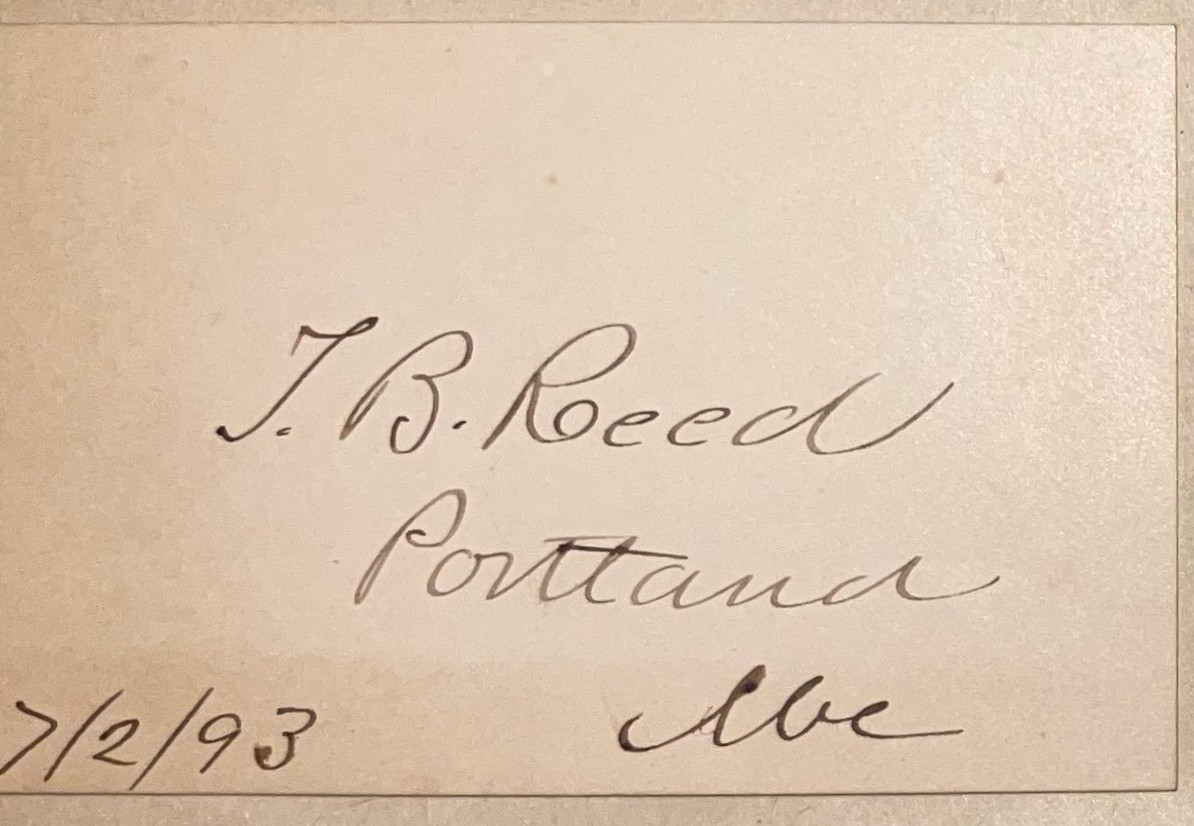 T. B. Reed
Portland
Me
7/2/93